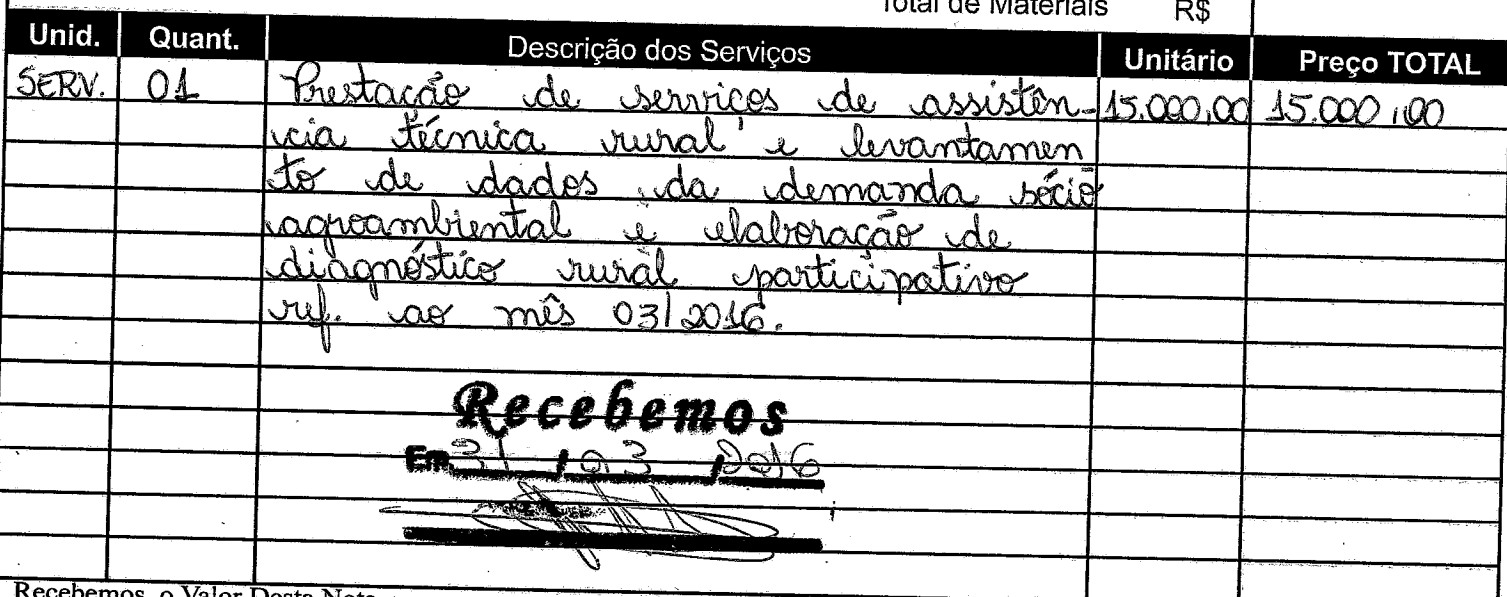 Total de Materiais R$
Unid. Quant. Descrição dos Serviços Unitário Preço TOTAL
SERV. 01 Prestação de serviços de assistên- 15.000,00 15.000,00
cia técnica rural e levantamen
to de dados da demanda sócio
agroambiental e elaboração de
diagnóstico rural participativo
ref. ao mês 03/2016.
Recebemos
Em 31 / 03 / 2016
Recebemos o Valor Desta Nota